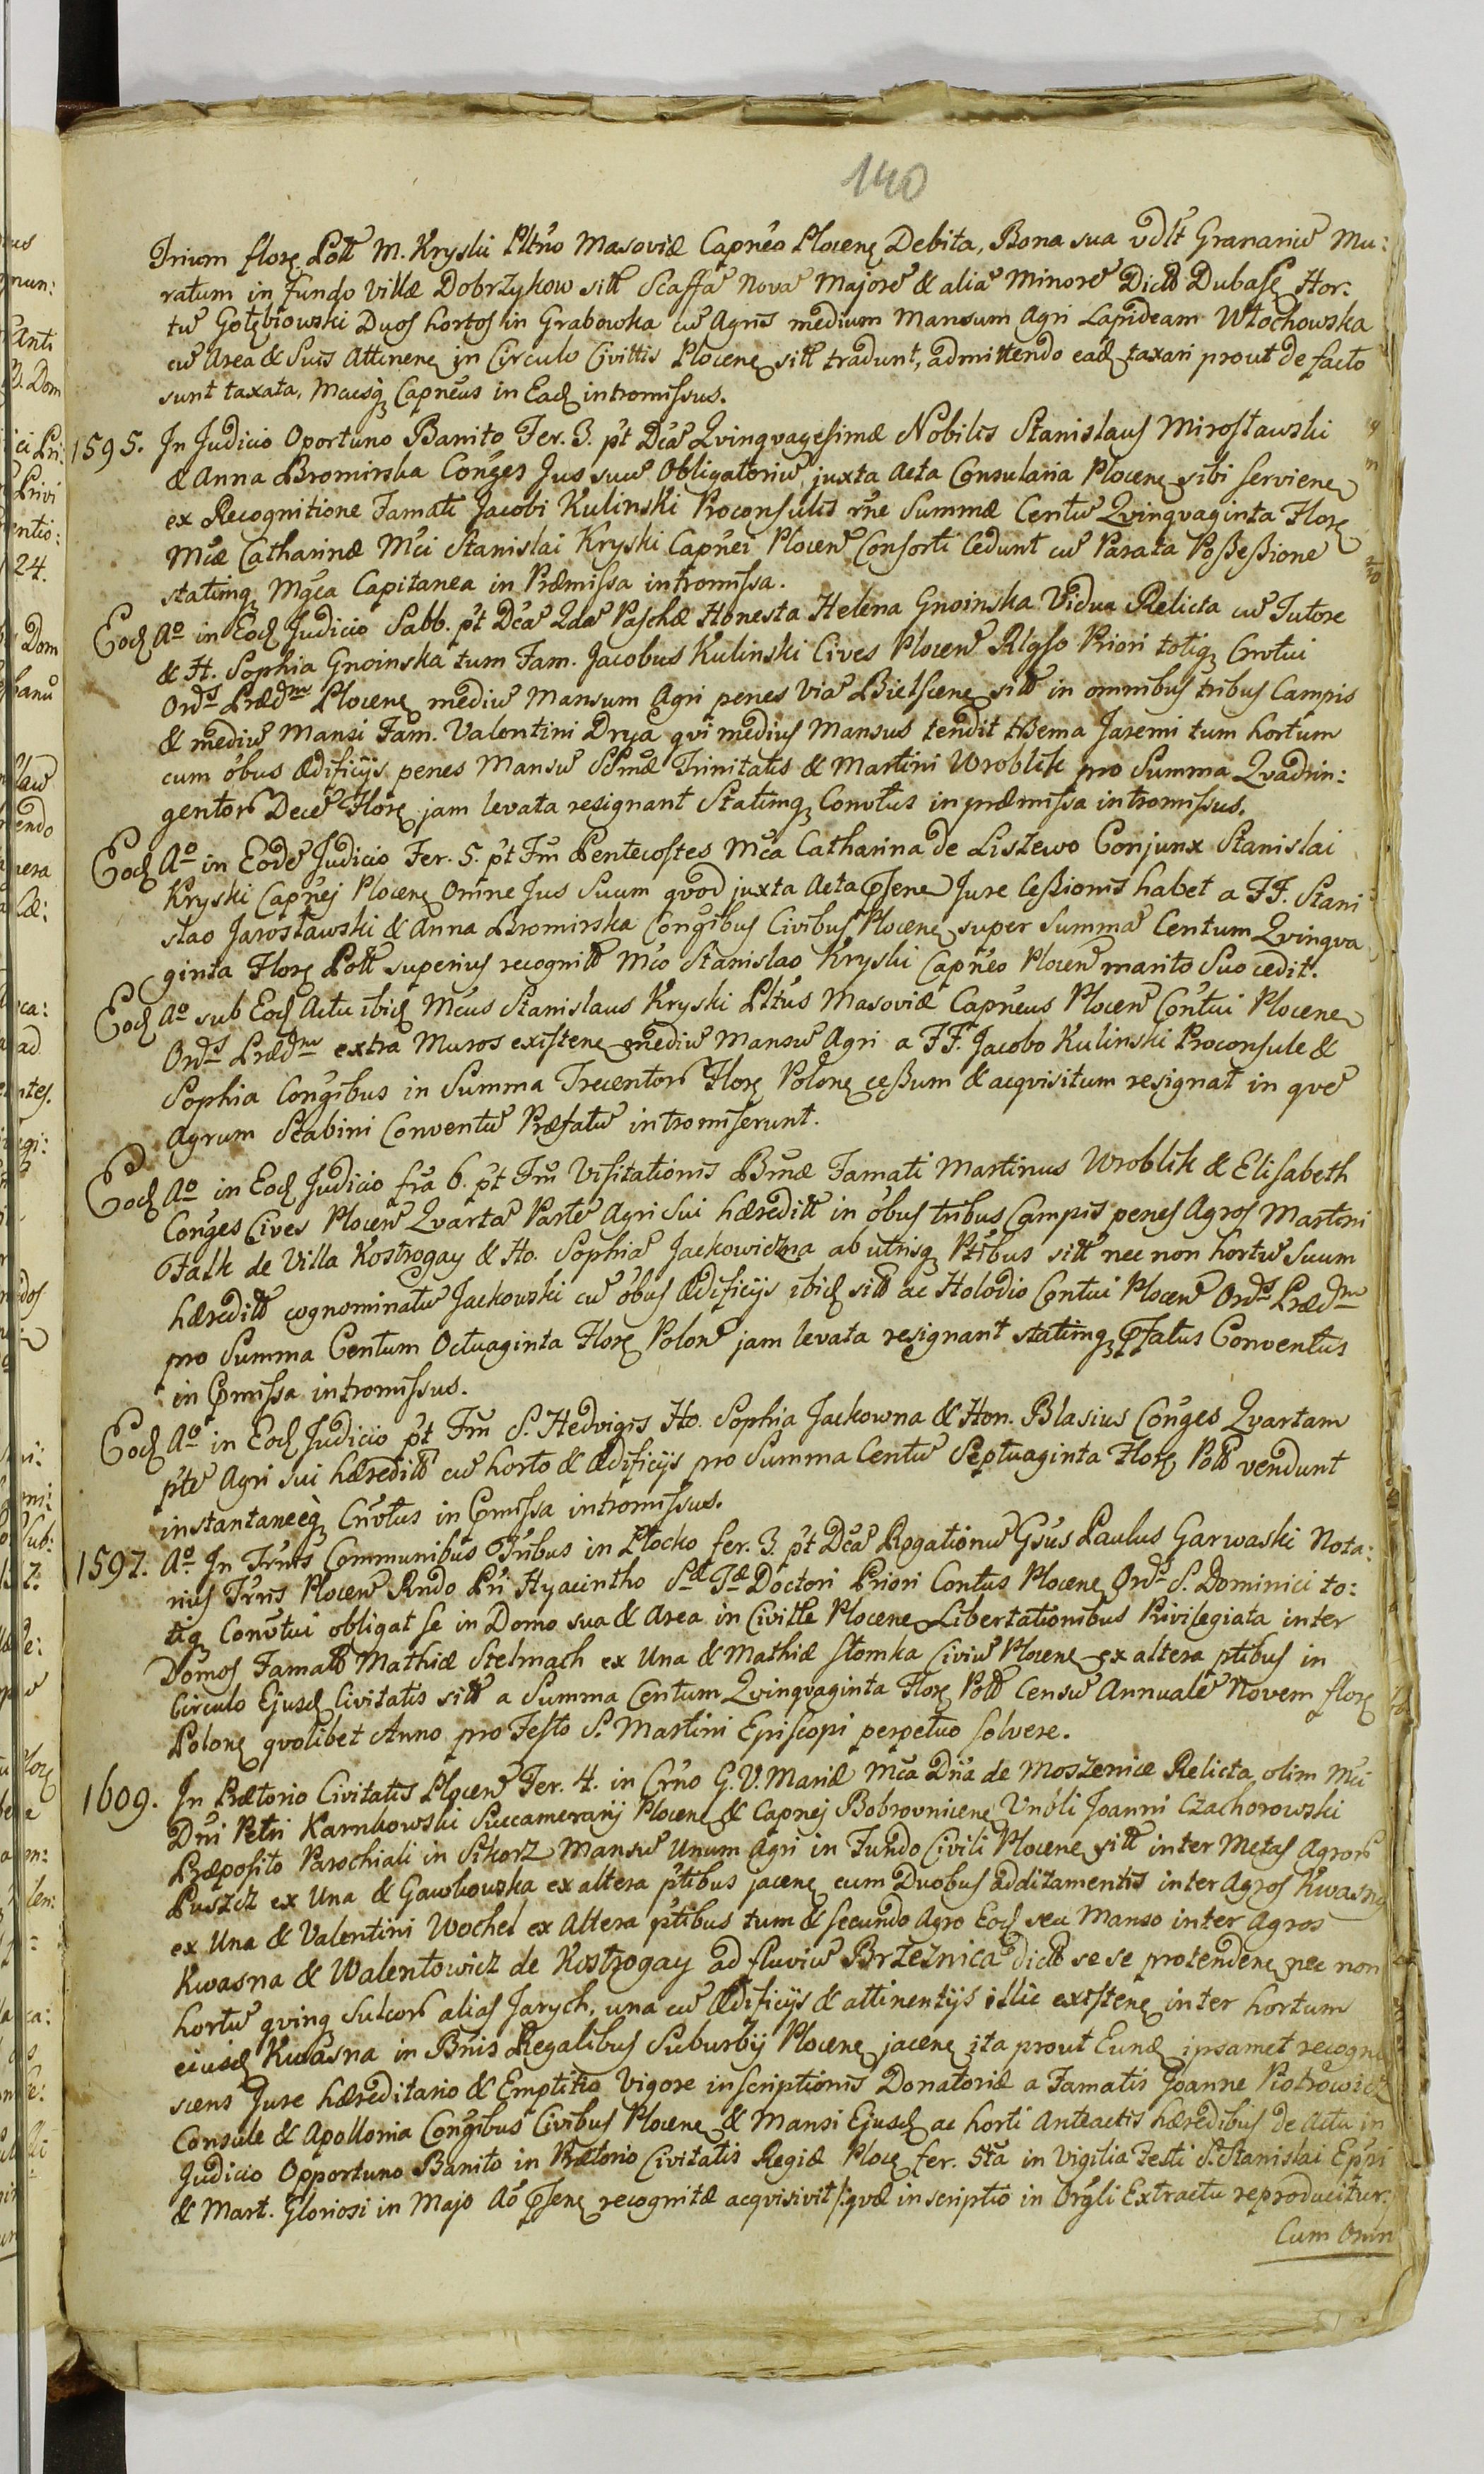 140
Trium flore Poll M. Kryski Pltno Masoviæ Capneo Plocene Debita, Bona sua vdlt Granariu Mu:
ratum in fundo villæ Dobrzykow sitt Scaffa Nova Majore & alia Minore Dict Dubase Hor:
tu Gołębiowski Duos hortos in Grabowka cu Agris medium Mansum Agri Lapideam Włochowska
cu Area & Suis Attinene in Circulo Civittis Plocene sitt tradunt, admittendo ead taxari prout de facto
sunt taxata, Mcusq Capneus in Ead intromissus.
1595. In Judicio Oportuno Banito Fer. 3. pt Dca Qvinqvagesimæ Nobilis Stanislaus Mirosławski
& Anna Bromirska Conges Jus suu Obligatoriu juxta Acta Consularia Plocene sibi serviene
ex Recognitione Famati Jacobi Kulinski Proconsulis rne Summæ Centu Qvinqvaginta Flore
Mcæ Catharinæ Mci Stanislai Kryski Capnei Plocen Consorti Cedunt cu Parata Possessione
statimq Mgca Capitanea in Præmissa intromissa.
Eod Ao in Eod Judicio Sabb. pt Dca 2da Paschæ Honesta Helena Gnoinska Vidua Relicta cu Tutore
& H. Sophia Gnoinska tum Fam. Jacobus Kulinski Cives Plocen Rlgso Priori totiq Cnvtui
Ords Prædm Plocene mediu Mansum Agri penes Via Bielscene sitt in omnibus tribus Campis
& mediu Mansi Fam. Valentini Drya qvi medius Mansus tendit Jaremi tum hortum
cum obus Ædificijs penes Mansu SSmæ Trinitatis & Martini Wroblik pro Summa Qvadrin:
gentor Dece Flore jam levata resignant Statimq Convtus in præmissa intromissus.
Eod Ao in Eode Judicio Fer. 5. pt Fm Pentecostes Mca Catharina de Liszewo Conjunx Stanislai
Kryski Capnej Plocene Omne Jus Suum qvod juxta Acta psene Jure Cessionis habet a FF. Stani
slao Jarosławski & Anna Bromirska Congibus Civibus Plocene super Summa Centum Qvinqva
ginta Flore Poll superius recognitt Mco Stanislao Kryski Capneo Plocen marito Suo cedit.
Eod Ao sub Eod Actu ibid Mcus Stanislaus Kryski Pltus Masoviæ Capneus Plocen Contui Plocene
Ords Prædm extra Muros existene mediu Mansu Agri a FF. Jacobo Kulinski Proconsule &
Sophia Congibus in Summa Trecentor Flore Polone cessum & acqvisitum resignat in qve
Agrum Scabini Conventu Præfatu intromiserunt.
Eod Ao in Eod Judicio fra 6. pt Fm Visitationis Bmæ Famati Martinus Wroblik & Elisabeth
Conges Cives Plocen Qvarta Parte Agri Sui hæreditt in obus tribus Campis penes Agros Martini
Falk de Villa Kostrogay & Ho. Sophia Jackowiczna ab utrisq Ptibus sitt nec non hortu Suum
hæreditt cognominatu Jackowski cu obus Ædificijs ibid sitt ac Holodio Contui Plocen Ords Prædm
pro Summa Centum Octuaginta Flore Polon jam levata resignant statimq pfatus Conventus
in pmissa intromissus.
Eod Ao in Eod Judicio pt Fm S. Hedvigis Ho. Sophia Jackowna & Hon. Blasius Conges Qvartam
pte Agri sui hæreditt cu horto & Ædificijs pro Summa Centu Septuaginta Flore Poll vendunt
instantaneeq Cnvtus in pmissa intromissus.
1597. Ao In Trnis Communibus Tribus in Płocko fer. 3. pt Dca Rogationu Gsus Paulus Garwaski Nota:
rius Trris Plocen Rndo Pri Hyacintho Sæ Tæ Doctori Priori Contus Plocene Ords S. Dominici to:
tiq Convtui obligat se in Domo sua & Area in Civitte Plocene Libertationibus Privilegiata inter
Domos Famatt Mathiæ Stelmach ex Una & Mathiæ Słomka Civiu Plocene ex altera ptibus in
Circulo Ejusd Civitatis sitt a Summa Centum Qvinqvaginta Flore Poll Censu Annuale Novem flore
Polone qvolibet Anno pro Festo S. Martini Episcopi perpetuo solvere.
1609. In Prætorio Civitatis Plocen Fer. 4. in Crno G. V. Mariæ Mca Dna de Moszenice Relicta olim Mci
Dni Petri Karnkowski Succamerarij Plocene & Capnej Bobrovnicene Vnbli Joanni Czachorowski
Præposito Parochiali in Sikorz Mansu Unum Agri in Fundo Civili Plocene sitt inter Metas Agror
Puszcz ex Una & Gawkowska ex altera ptibus jacene cum Duobus additamentis inter Agros Kwasny
ex Una & Valentini Wochel ex Altera ptibus tum & secundo Agro Eod seu Manso inter Agros
Kwasna & Walentowicz de Kostrogay ad fluviu Brzeznica dict se se protendene nec non
hortu qvinq Sulcor alias Jarych, una cu Ædificijs & attinentijs illic existene inter hortum
ejusd Kwasna in Bnis Regalibus Suburbij Plocene jacene ita prout Eund ipsamet recogno
scens Jure hæreditario & Emptitio Vigore inscriptionis Donatoriæ a Famatis Joanne Piotrowicz
Consule & Apollonia Congibus Civibus Plocene & Mansi Ejusd ac horti Anteactis hæredibus de Actu in
Judicio Opportuno Banito in Prætorio Civitatis Regiæ Ploce fer. 5ta in Vigilia Festi S. Stanislai Epri
& Mart. Gloriosi in Majo Ao psene recognitæ acqvisivit /: qvæ inscriptio in Orgli Extractu reproducitur.
Cum Omn